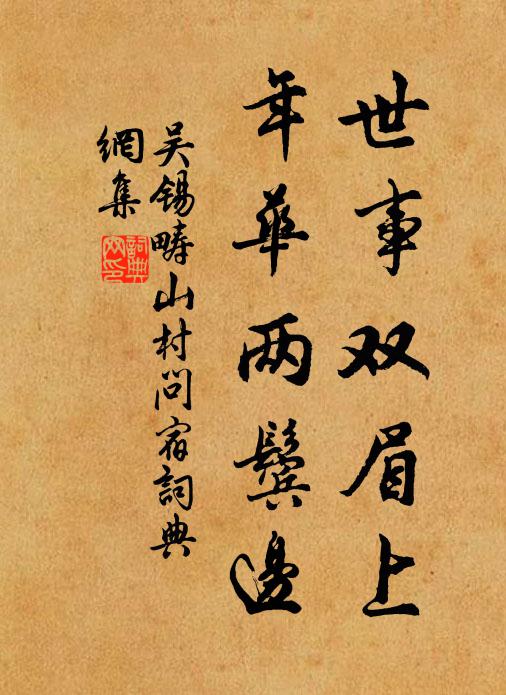 世事双眉上
年華两鬓邊
吴锡畴山村問宿詞典
網集
詞典网印